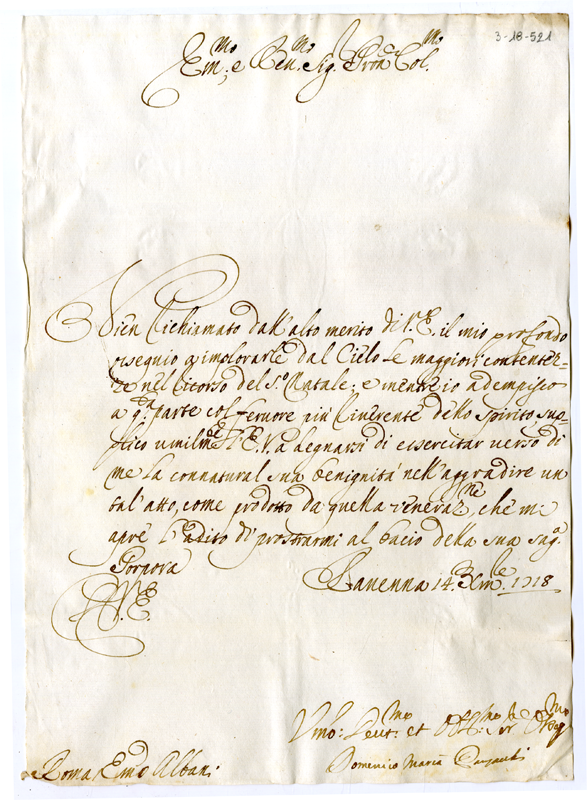 3-18-521
Em.mo e Rev.mo Sig. Pron Col.mo
Vien richiamato dall'alto merito di V.E. il mio profondo
ossequio ad implorarle dal Cielo le maggiori contentez=
ze nel ricorso del S.o Natale; e mentre io adempisco
a q.ta parte col fervore più riverente dello spirito sup=
plico umilm.te l'E.V. a degnarsi di esercitar verso di
me la connatural sua benignità nell'aggradire un
tal'atto, come prodotto da quella veneraz.ne, che mi
apre l'adito di prostrarmi al bacio della sua sag.a
Porpora
Ravenna 14. Xm.bre 1718
V.E.
Umo: Devot.mo et Obb.mo Ser
Domenico Maria
Roma Emo Albani